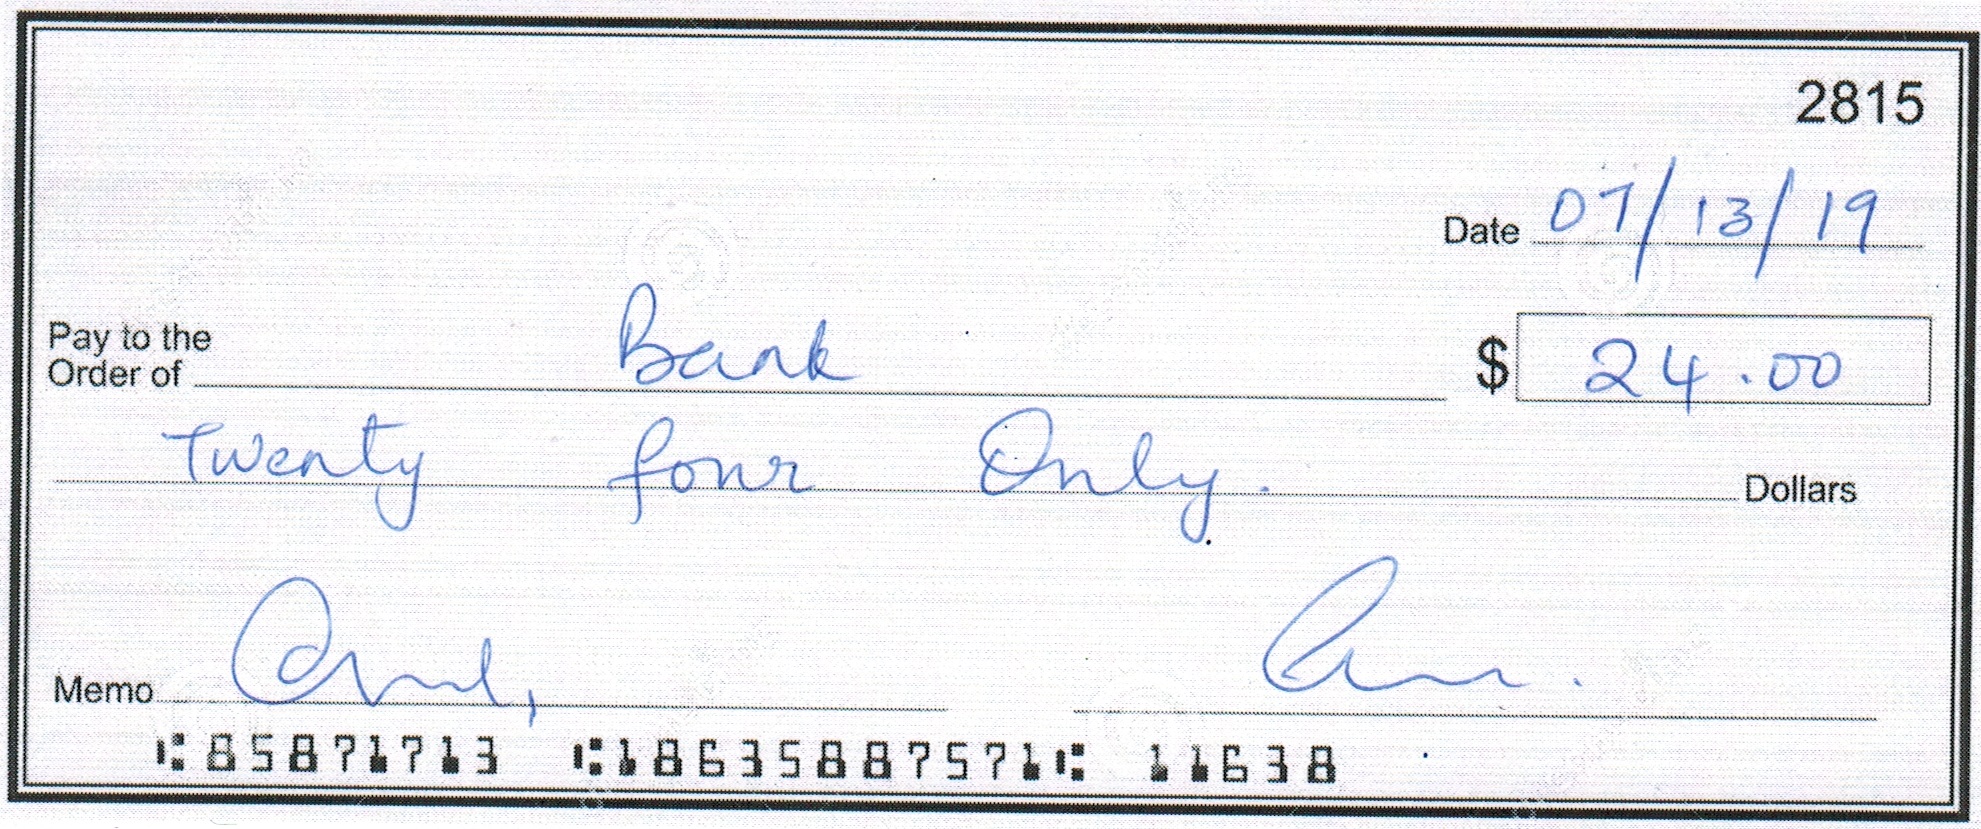 2815
Date 07/13/19
Pay to the
Order of Bank $ 24.00
Twenty four Only. Dollars
Memo
⑆85871713 ⑆18635887571⑆ 11638